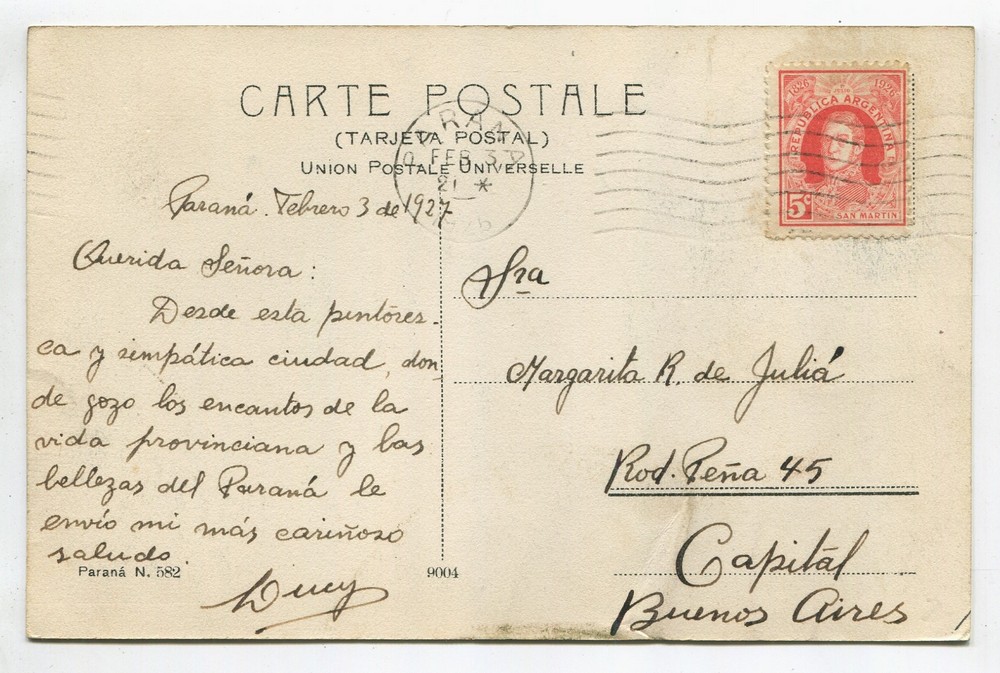 CARTE POSTALE
(TARJETA POSTAL)
UNION POSTALE UNIVERSELLE
PARANA
FEB 3
21 *
1826 1926
REPUBLICA ARGENTINA
5c
SAN MARTIN
Paraná. Febrero 3 de 1927
Querida Señora:
Desde esta pintores-
ca y simpática ciudad, don-
de gozo los encantos de la
vida provinciana y las
bellezas del Paraná le
envío mi más cariñoso
saludo.
Lucy
Paraná N. 582
9004
Sra
Margarita R. de Juliá
Rod. Peña 45
Capital
Buenos Aires